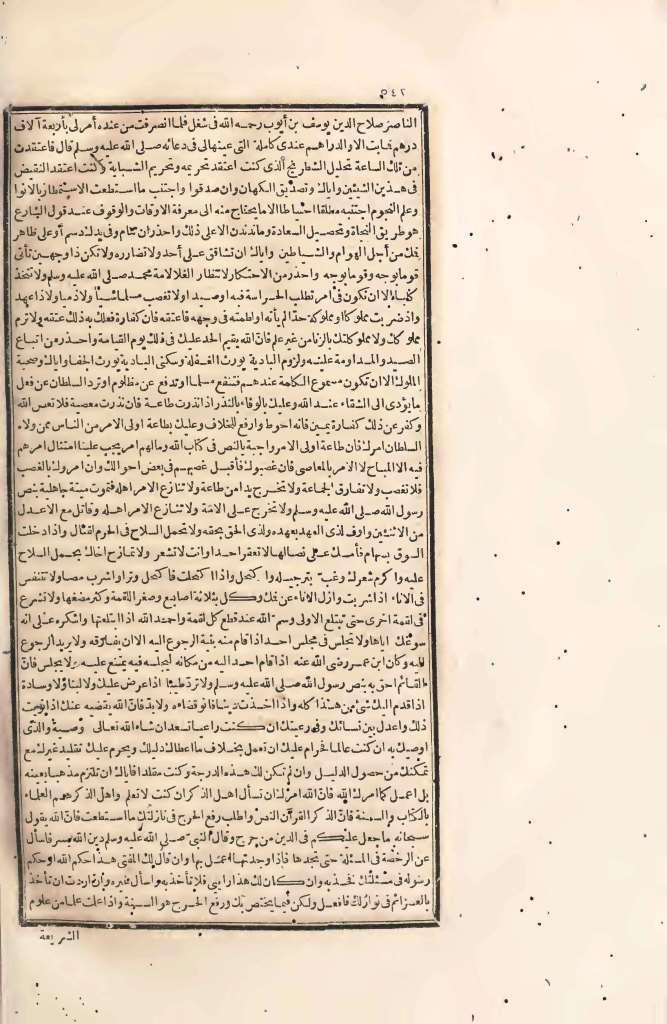 ٥٤٢
الناصر صلاح الدين يوسف بن أيوب رحمه الله فى شغل فلما انصرفت من عنده أمر لى بأربعة آلاف
درهم فباتت الاو الدراهم عندى كاملة التى عينها لى فى دعائه صلى الله عليه وسلم قال فاعتقدت
من تلك الساعة تحليل الشطرنج الذى كنت اعتقد تحريمه وتحريم الشبابة وكنت اعتقد النقيض
فى هذين الشيئين واياك وتصديق الكهان وان صدقوا واجتنب ما استطعت الاستمطار بالانوا
وعلم النجوم اجتنبه مطلقا احتياطا الا ما يحتاج منه الى معرفة الاوقات والوقوف عند قول الشارع
هو طريق النجاة وتحصيل السعادة وما ندندن الا على ذلك واحذر ان تنام وفى يدك دسم أو على ظاهر
فمك من أجل الهوام والشياطين واياك ان تشاقق على أحد ولا تضارره ولا تكن ذا وجهين تأتى
قوما بوجه وقوما بوجه واحذر من الاحتكار لانتظار الغلا لامة محمد صلى الله عليه وسلم ولا تتخذ
كلبا الا ان تكون فى أمر تطلب الحراسة فيه أو صيد ولا تغصب مسلما شيأ ولا ذميا ولا ذا عهد
واذا ضربت مملوكا او مملوكة حدا لم يأته او لطمته فى وجهه فاعتقه فان كفارة فعلك به ذلك عتقه ولا ترم
مملوكك ولا مملوكتك بالزنا من غير علم فان الله يقيم الحد عليك فى ذلك يوم القيامة واحذر من اتباع
الصيد والمداومة عليه ولزوم البادية يورث الغفلة وسكنى البادية يورث الجفا واياك وصحبة
الملوك الا ان تكون مسموع الكلمة عندهم فتنفع مسلما او تدفع عن مظلوم او ترد السلطان عن فعل
ما يؤدى الى الشقاء عند الله وعليك بالوفاء بالنذر اذا نذرت طاعة فان نذرت معصية فلا تعص الله
وكفر عن ذلك كفارة يمين فانه احوط وارفع للخلاف وعليك بطاعة اولى الامر من الناس ممن ولاه
السلطان امرك فان طاعة اولى الامر واجبة بالنص فى كتاب الله وما لهم امر يجب علينا امتثال امرهم
فيه الا المباح لا الامر بالمعاصى فان غصبوك فاقبل غصبهم فى بعض احوالك وان امروك بالغصب
فلا تغصب ولا تفارق الجماعة ولا تخرج يدا من طاعة ولا تنازع الامر اهله فتموت ميتة جاهلية بنص
رسول الله صلى الله عليه وسلم ولا تخرج على الامة ولا تنازع الامر اهله وقاتل مع الاعدل
من الاثنين واوف لذى العهد بعهده ولذى الحق بحقه ولا تحمل السلاح فى الحرم لقتال واذا دخلت
السوق بسهام فأمسك على نصالها لا تعقر احدا وانت لا تشعر ولا تمازح اخاك بحمل السلاح
عليه واكرم شعرك وغب بترجيله و كتحل واذا اكتحلت فاكتحل وترا واشرب مصا ولا تتنفس
فى الاناء اذا شربت وازل الاناء عن فمك وكل بثلاثة اصابع وصغر اللقمة وكثر مضغها ولا تشرع
فى لقمة اخرى حتى تبتلع الاولى وسم الله عند قطع كل لقمة واحمد الله اذا ابتلعتها واشكره على انه
سوغك اياها ولا تجلس فى مجلس احد اذا قام منه بنية الرجوع اليه الا ان يفارقه ولا يريد الرجوع
اليه وكان ابن عمر رضى الله عنه اذا قام احد اليه من مكانه ليجلسه فيه يمتنع عليه ولا يجلس فان
القائم احق به بنص رسول الله صلى الله عليه وسلم ولا ترد طيبا اذا عرض عليك ولا لبنا ولا وسادة
اذا قدم اليك شئ من هذا كله واذا اخذت دينا فانو قضاءه ولا بد فان الله يقضيه عنك اذا نويت
ذلك واعدل بين نسائك وفى رعيتك ان كنت راعيا تسعد ان شاء الله تعالى وصية والذى
اوصيك به ان كنت عالما فحرام عليك ان تعمل بخلاف ما اعطاك دليلك ويحرم عليك تقليد غيرك مع
تمكنك من حصول الدليل وان لم تكن لك هذه الدرجة وكنت مقلدا فاياك ان تلتزم مذهبا بعينه
بل اعمل كما امرك الله فان الله امرك ان تسأل اهل الذكر ان كنت لا تعلم واهل الذكر هم العلماء
بالكتاب والسنة فان الذكر القرآن بالنص واطلب رفع الحرج فى نازلتك ما استطعت فان الله يقول
سبحانه ما جعل عليكم فى الدين من حرج وقال النبى صلى الله عليه وسلم دين الله يسر فاسأل
عن الرخصة فى المسئلة حتى تجدها فاذا وجدتها فاعمل بها وان قال لك المفتى هذا حكم الله او حكم
رسوله فى مسئلتك فخذ به وان كان لك هذا رأيى فلا تأخذ به واسأل غيره وان اردت ان تأخذ
بالعزائم فى نوازلك فافعل ولكن فيما يختص بك ورفع الحرج هو السنة واذا علت علما من علوم
الشريعة